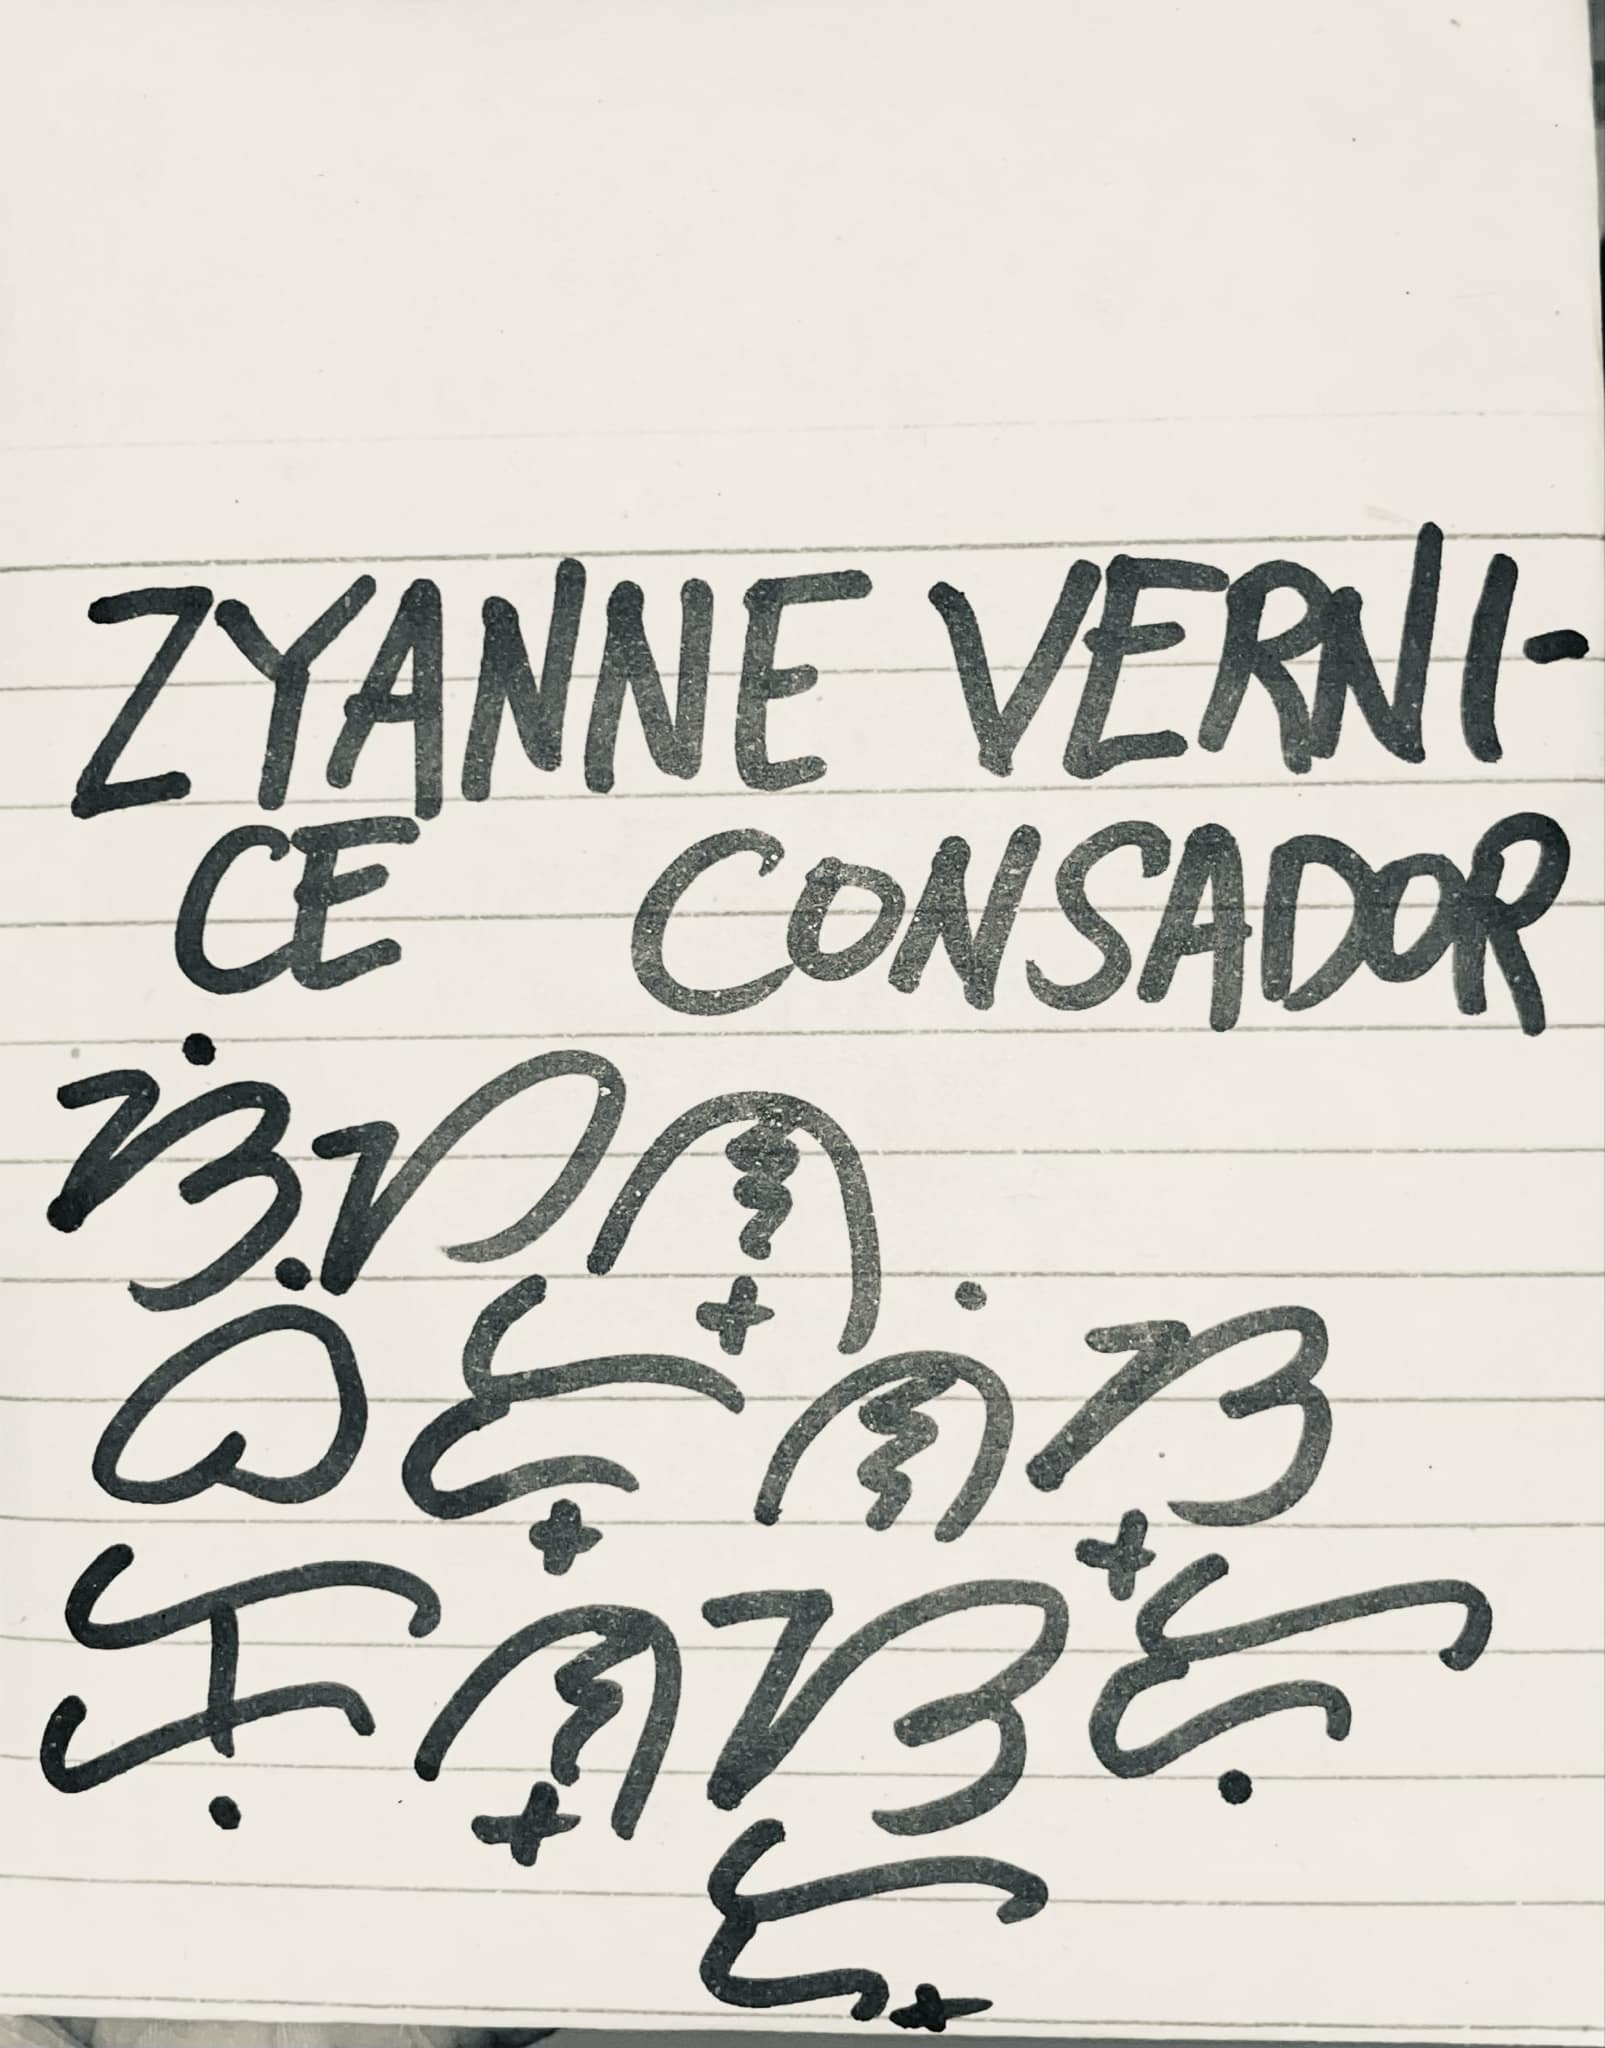 ZYANNE VERNI-
CE CONSADOR
ᜐᜒᜌᜈ᜔
ᜊᜒᜇ᜔ᜈᜒᜐ᜔
ᜃᜓᜈ᜔ᜐᜇᜓ
ᜇ᜔